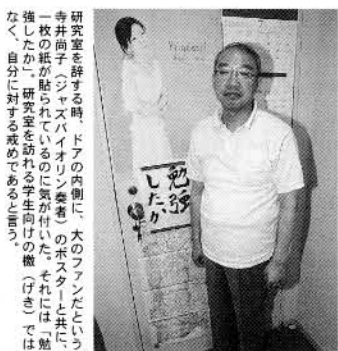 研究室を辞する時、ドアの内側に、大のファンだという
寺井尚子（ジャズバイオリン奏者）のポスターと共に、
一枚の紙が貼られているのに気が付いた。それには「勉
強したか」。研究室を訪れる学生向けの檄（げき）では
なく、自分に対する戒めであると言う。
勉強
したか